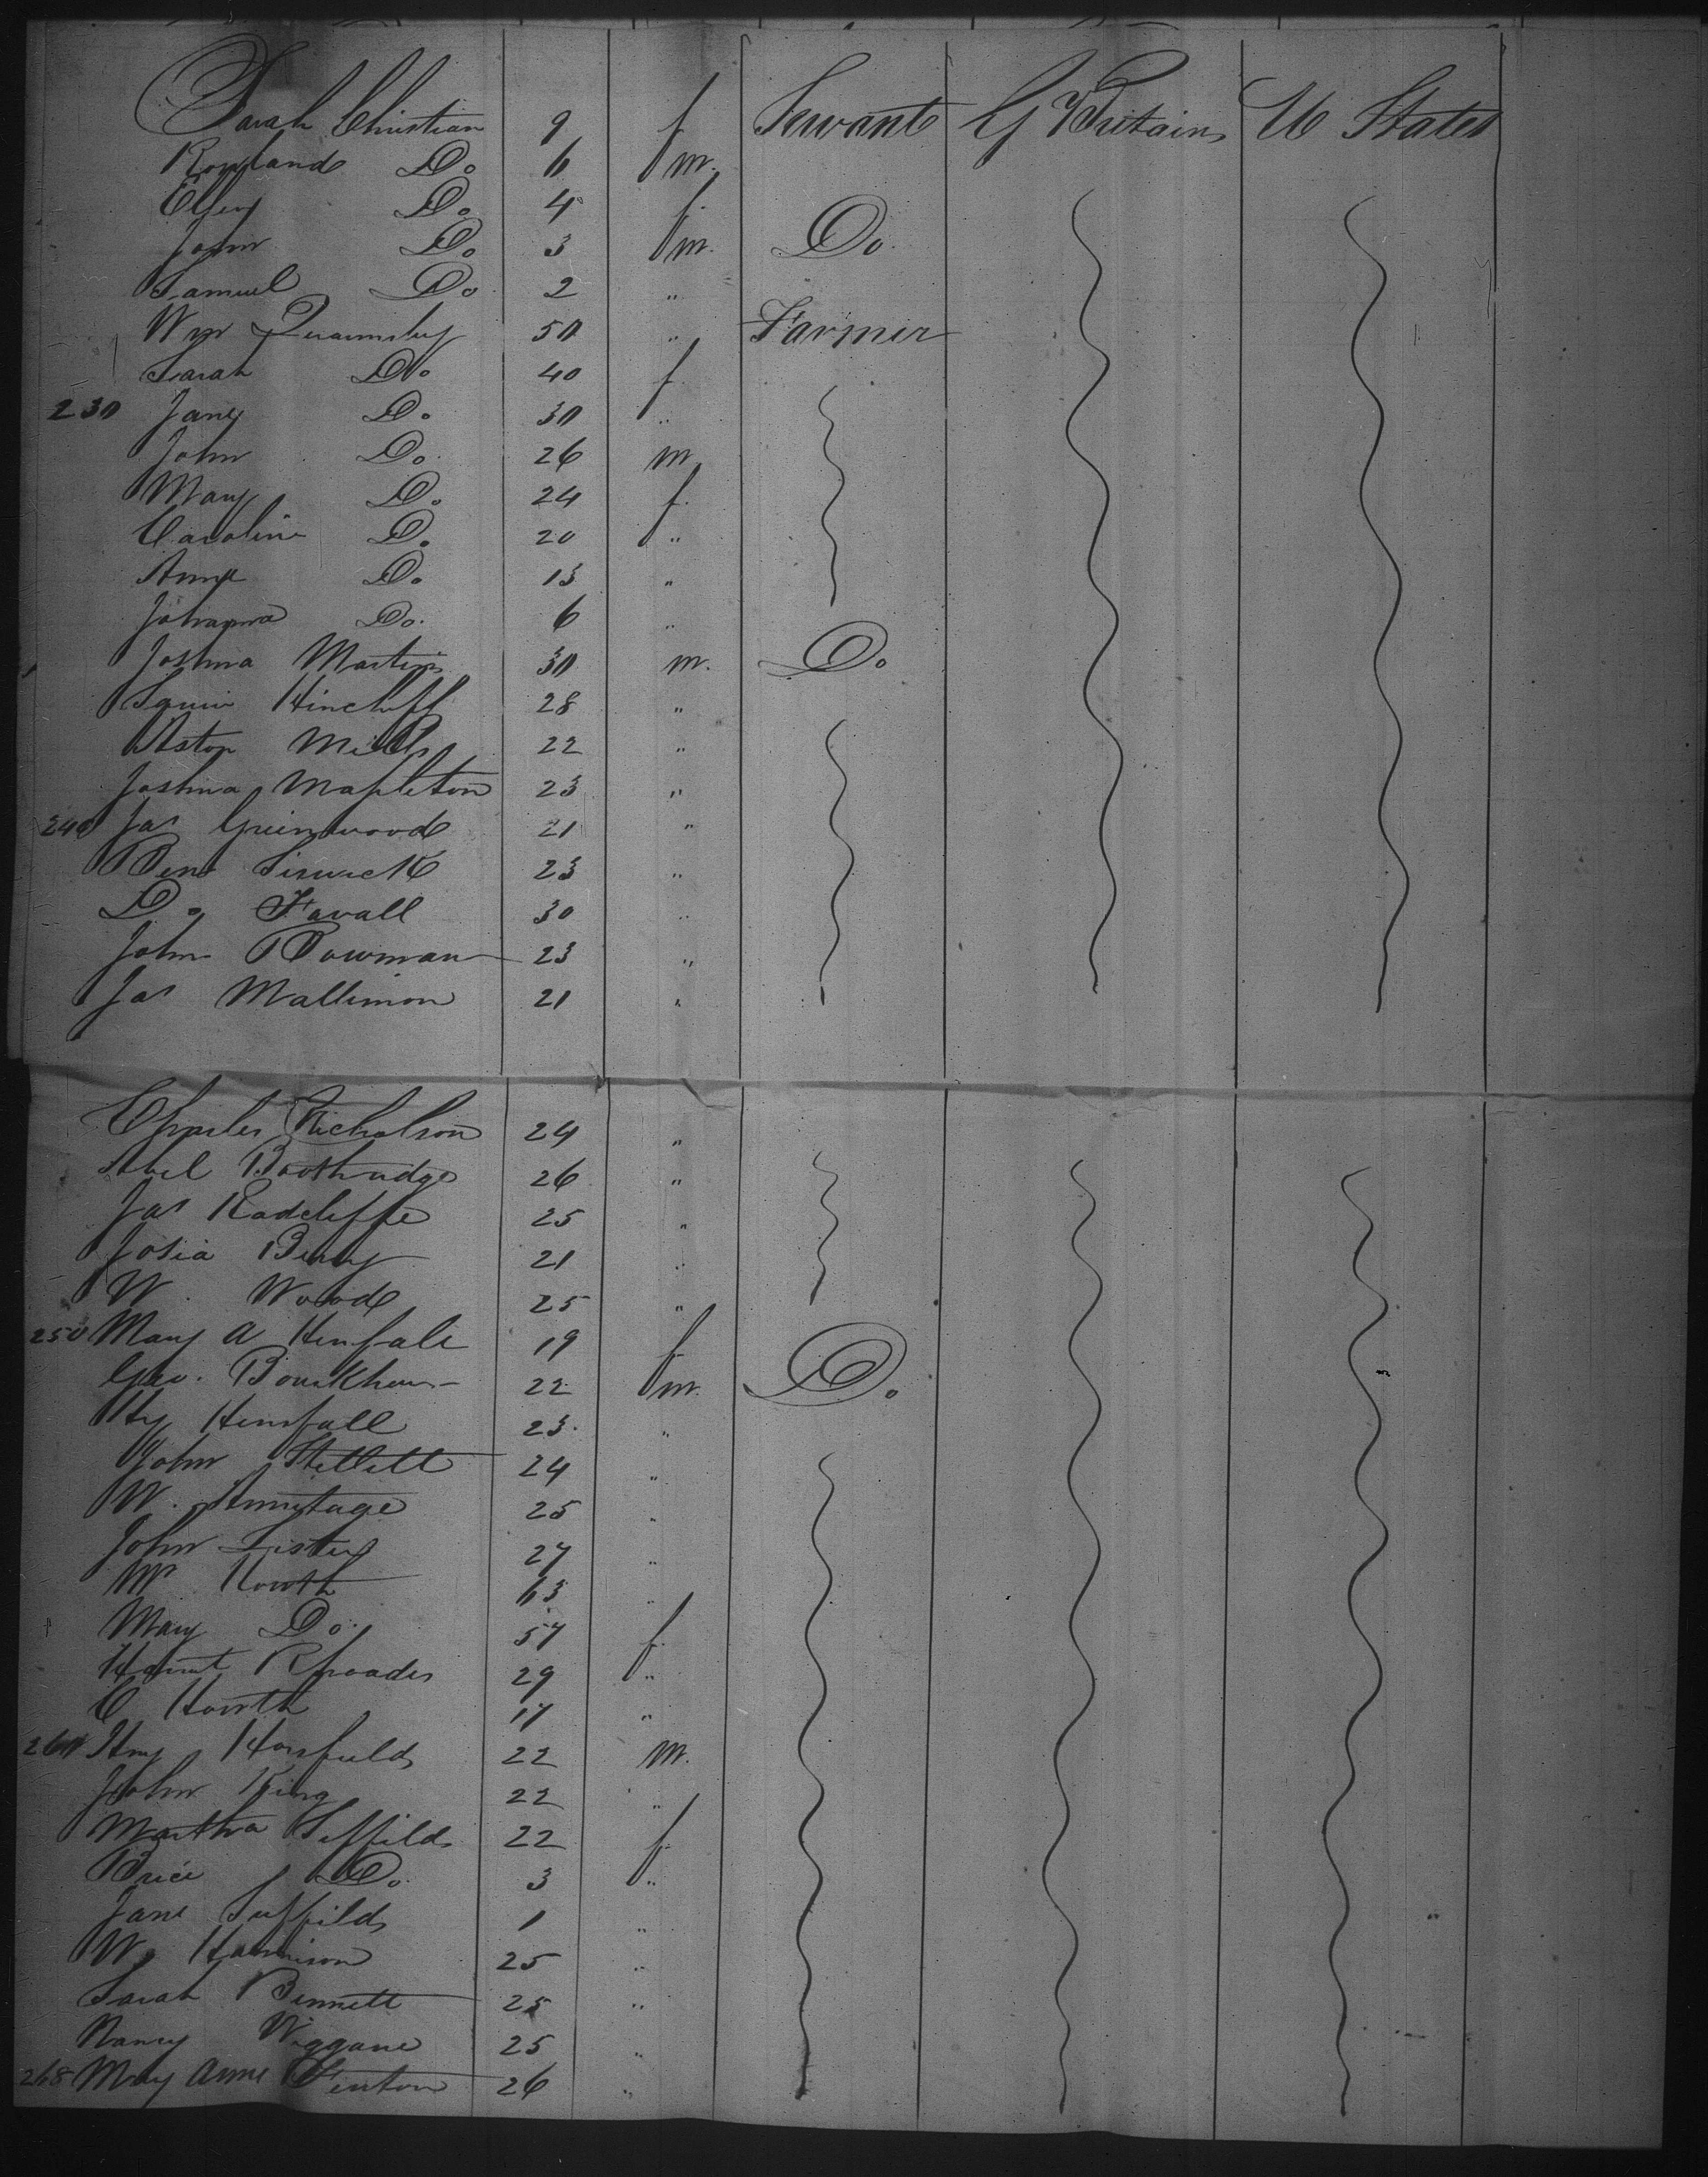 Sarah Christian 9 f Servant G Britain U States
Rowland Do 6 m.
Ellen Do 4 f.
John Do 3 m. Do.
Samuel Do 2 "
Wm 50 " Farmer
Sarah Do 40 f
230 Jane Do. 30 "
John Do. 26 m
Mary Do. 24 f.
Caroline Do. 20 "
Anne Do. 13 "
Johanna Do. 6 "
Joshua Martin 30 m. Do.
Squire Hinchliff 28 "
Aston Mills 22 "
Joshua Mapleton 23 "
240 Jas Greenwood 21 "
Ben 23 "
Do Favall 30 "
John Bowman 23 "
Jas Mallinson 21 "
Charles Nicholson 24 "
Abel 26 "
Jas Radcliffe 25 "
Josia Berry 21 "
W. Wood 25 "
250 Mary A 19 f
Geo. 22 m. Do.
Hy 23. "
John 24 "
W. Armytage 25 "
John Lister 27 "
Wm Howth 63 "
Mary Do. 57 f.
Harriet Rhoades 29 "
C Howth 17 "
260 Hny Horsfield 22 m.
John King 22 "
Martha Suffield 22 f.
Brice Do. 3 "
Jane Suffield 1 "
W. Harrison 25 "
Sarah Bennett 25 "
Nancy Wiggane 25 "
268 Mary Anne Fenton 26 "